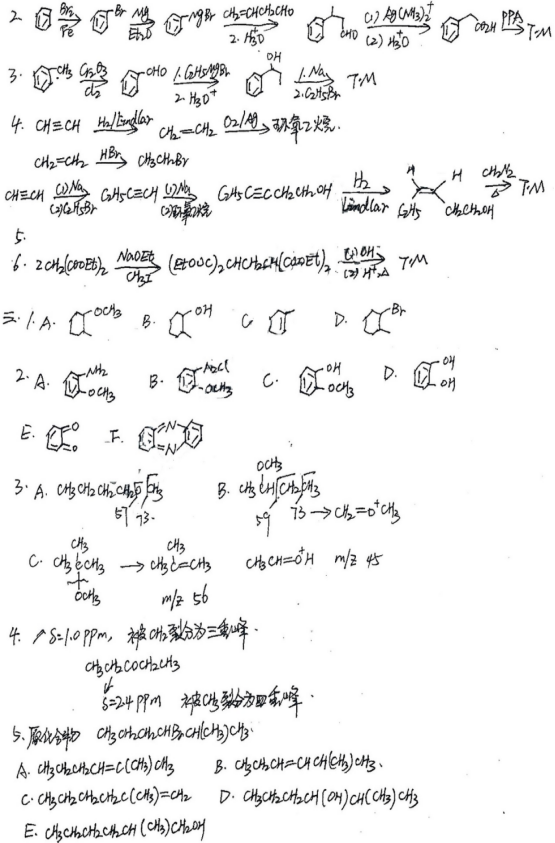 2. Br₂ Fe Br Mg Et₂O MgBr CH₂=CHCH₂CHO 2. H₃⁺O CHO (1) Ag(NH₃)₂⁺ (2) H₃⁺O CO₂H PPA
3. CH₃ CrO₃ CHO 1. C₂H₅MgBr 2. H₃O⁺ OH 1. Na 2. C₂H₅Br T.M
4. CH≡CH H₂/Lindlar CH₂=CH₂ O₂/Ag 环氧乙烷.
CH₂=CH₂ HBr CH₃CH₂Br
CH≡CH (1) Na (2) C₂H₅Br C₂H₅C≡CH (1) Na (2) 环氧乙烷 C₂H₅C≡CCH₂CH₂OH H₂ Lindlar H H C₂H₅ CH₂CH₂OH CH₂N₂ Δ T.M
5.
6. 2CH₂(COOEt)₂ NaOEt CH₃I (EtOOC)₂CHCH₂CH(COOEt)₂ (1) OH⁻ (2) H⁺,Δ T.M
三. 1. A. OCH₃ B. OH C D. Br
2. A. NH₂ OCH₃ B. N₂Cl OCH₃ C. OH OCH₃ D. OH OH
E. O O F. N N
3. A. CH₃CH₂CH₂CH₂O CH₃ B. CH₃CH CH₂ CH₃ OCH₃
57 73. 59 73 → CH₂=O⁺CH₃
C. CH₃ CH₃CCH₃ OCH₃ → CH₃ CH₃C=CH₃ CH₃CH=O⁺H m/z 45
m/z 56
4. δ=1.0 ppm, 被CH₂裂分为三重峰.
CH₃CH₂COCH₂CH₃
δ=2.4 ppm 被CH₃裂分为四重峰.
5. 原化合物 CH₃CH₂CH₂CHBrCH(CH₃)CH₃.
A. CH₃CH₂CH₂CH=C(CH₃)CH₃ B. CH₃CH₂CH=CHCH(CH₃)CH₃.
C. CH₃CH₂CH₂CH₂C(CH₃)=CH₂ D. CH₃CH₂CH₂CH(OH)CH(CH₃)CH₃
E. CH₃CH₂CH₂CH₂CH(CH₃)CH₂OH